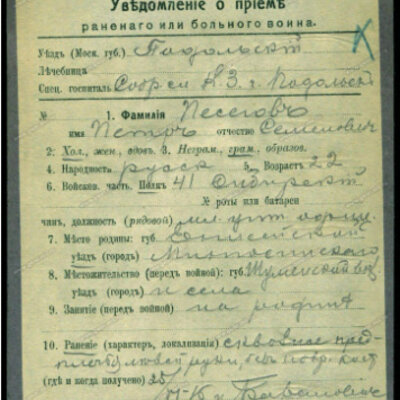 Увѣдомленіе о пріемѣ
раненаго или больного воина.
Уѣздъ (Моск. губ.) Подольскт
Лѣчебница
Спец. госпиталь № 3 г. Подольск
№ 1. Фамилія Песеговъ
имя Петръ отчество Семенович
2. Хол., жен., вдов. 3. Неграм., грам., образов.
4. Народность русск 5. Возрастъ 22
6. Войсков. часть. Полкъ 41 Сибирскт
№ роты или батареи
чинъ, должность (рядовой) мл. унт
7. Мѣсто родины: губ. Енисейской
уѣздъ (городъ) Минусинского
8. Мѣстожительство (передъ войной): губ.
уѣздъ (городъ) и села
9. Занятіе (передъ войной) на родинѣ
10. Раненіе (характеръ, локализація) сквозное пред-
плечья лѣвой руки, безъ повр. кост
(гдѣ и когда получено) 25/